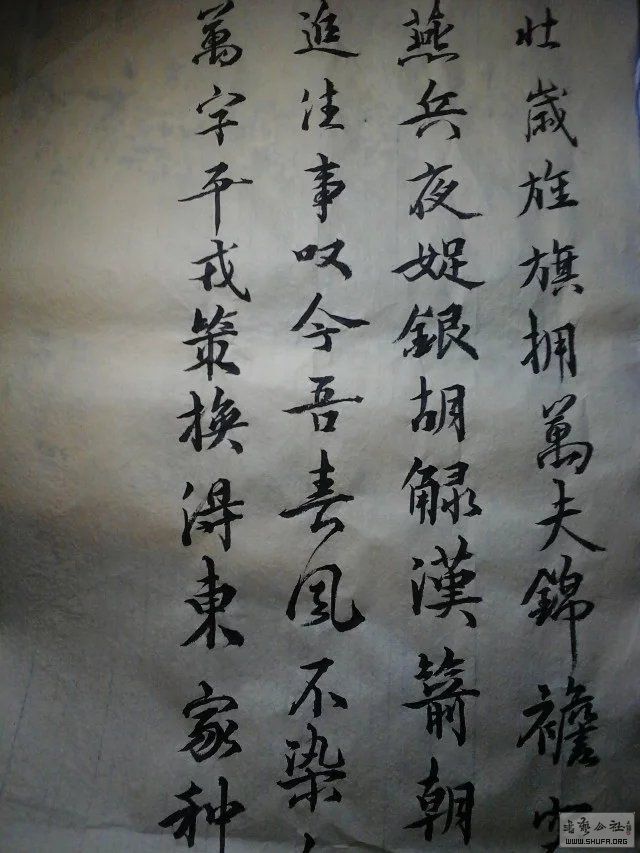 壯歲旌旗擁萬夫錦襜突
燕兵夜娖銀胡觮漢箭朝
追往事叹今吾春风不染
萬字平戎策換得東家种
书艺公社
WWW.SHUFA.ORG